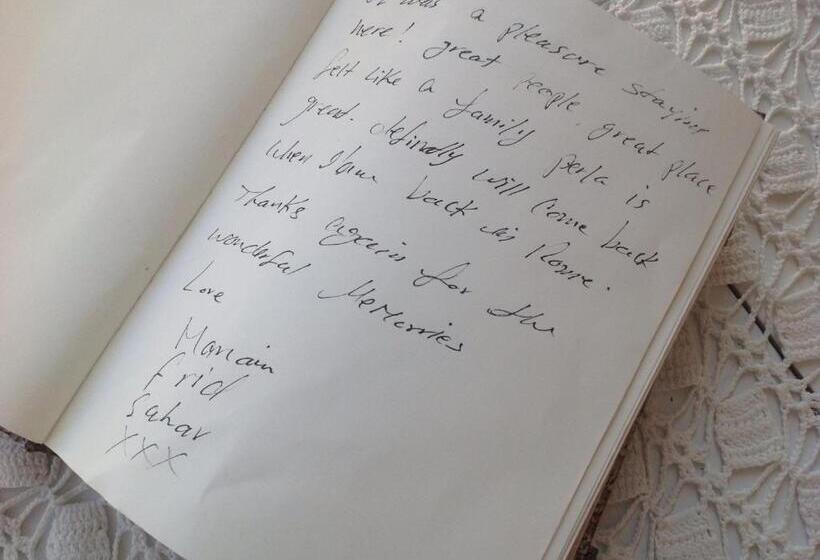 was a pleasure staying
here! great people. great place
felt like a family perla is
great. definatly will come back
when I am back in Rome.
Thanks again for the
wonderful Memorries
Love
Mariain
frid
Sahar
XXX